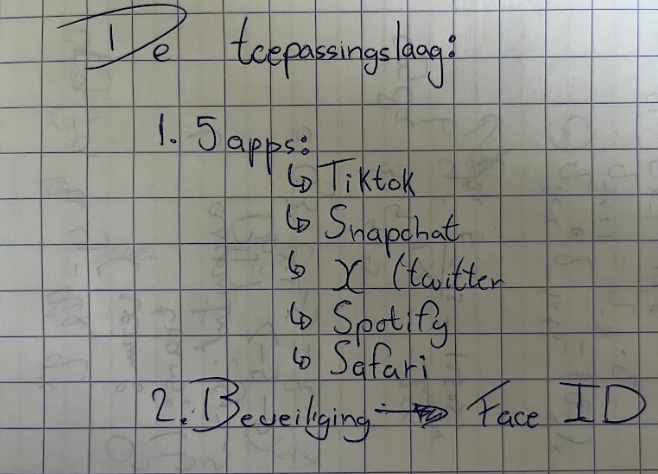 De toepassingslaag:
1. 5 apps:
↳ Tiktok
↳ Snapchat
↳ X (twitter
↳ Spotify
↳ Safari
2. Beveiliging → Face ID